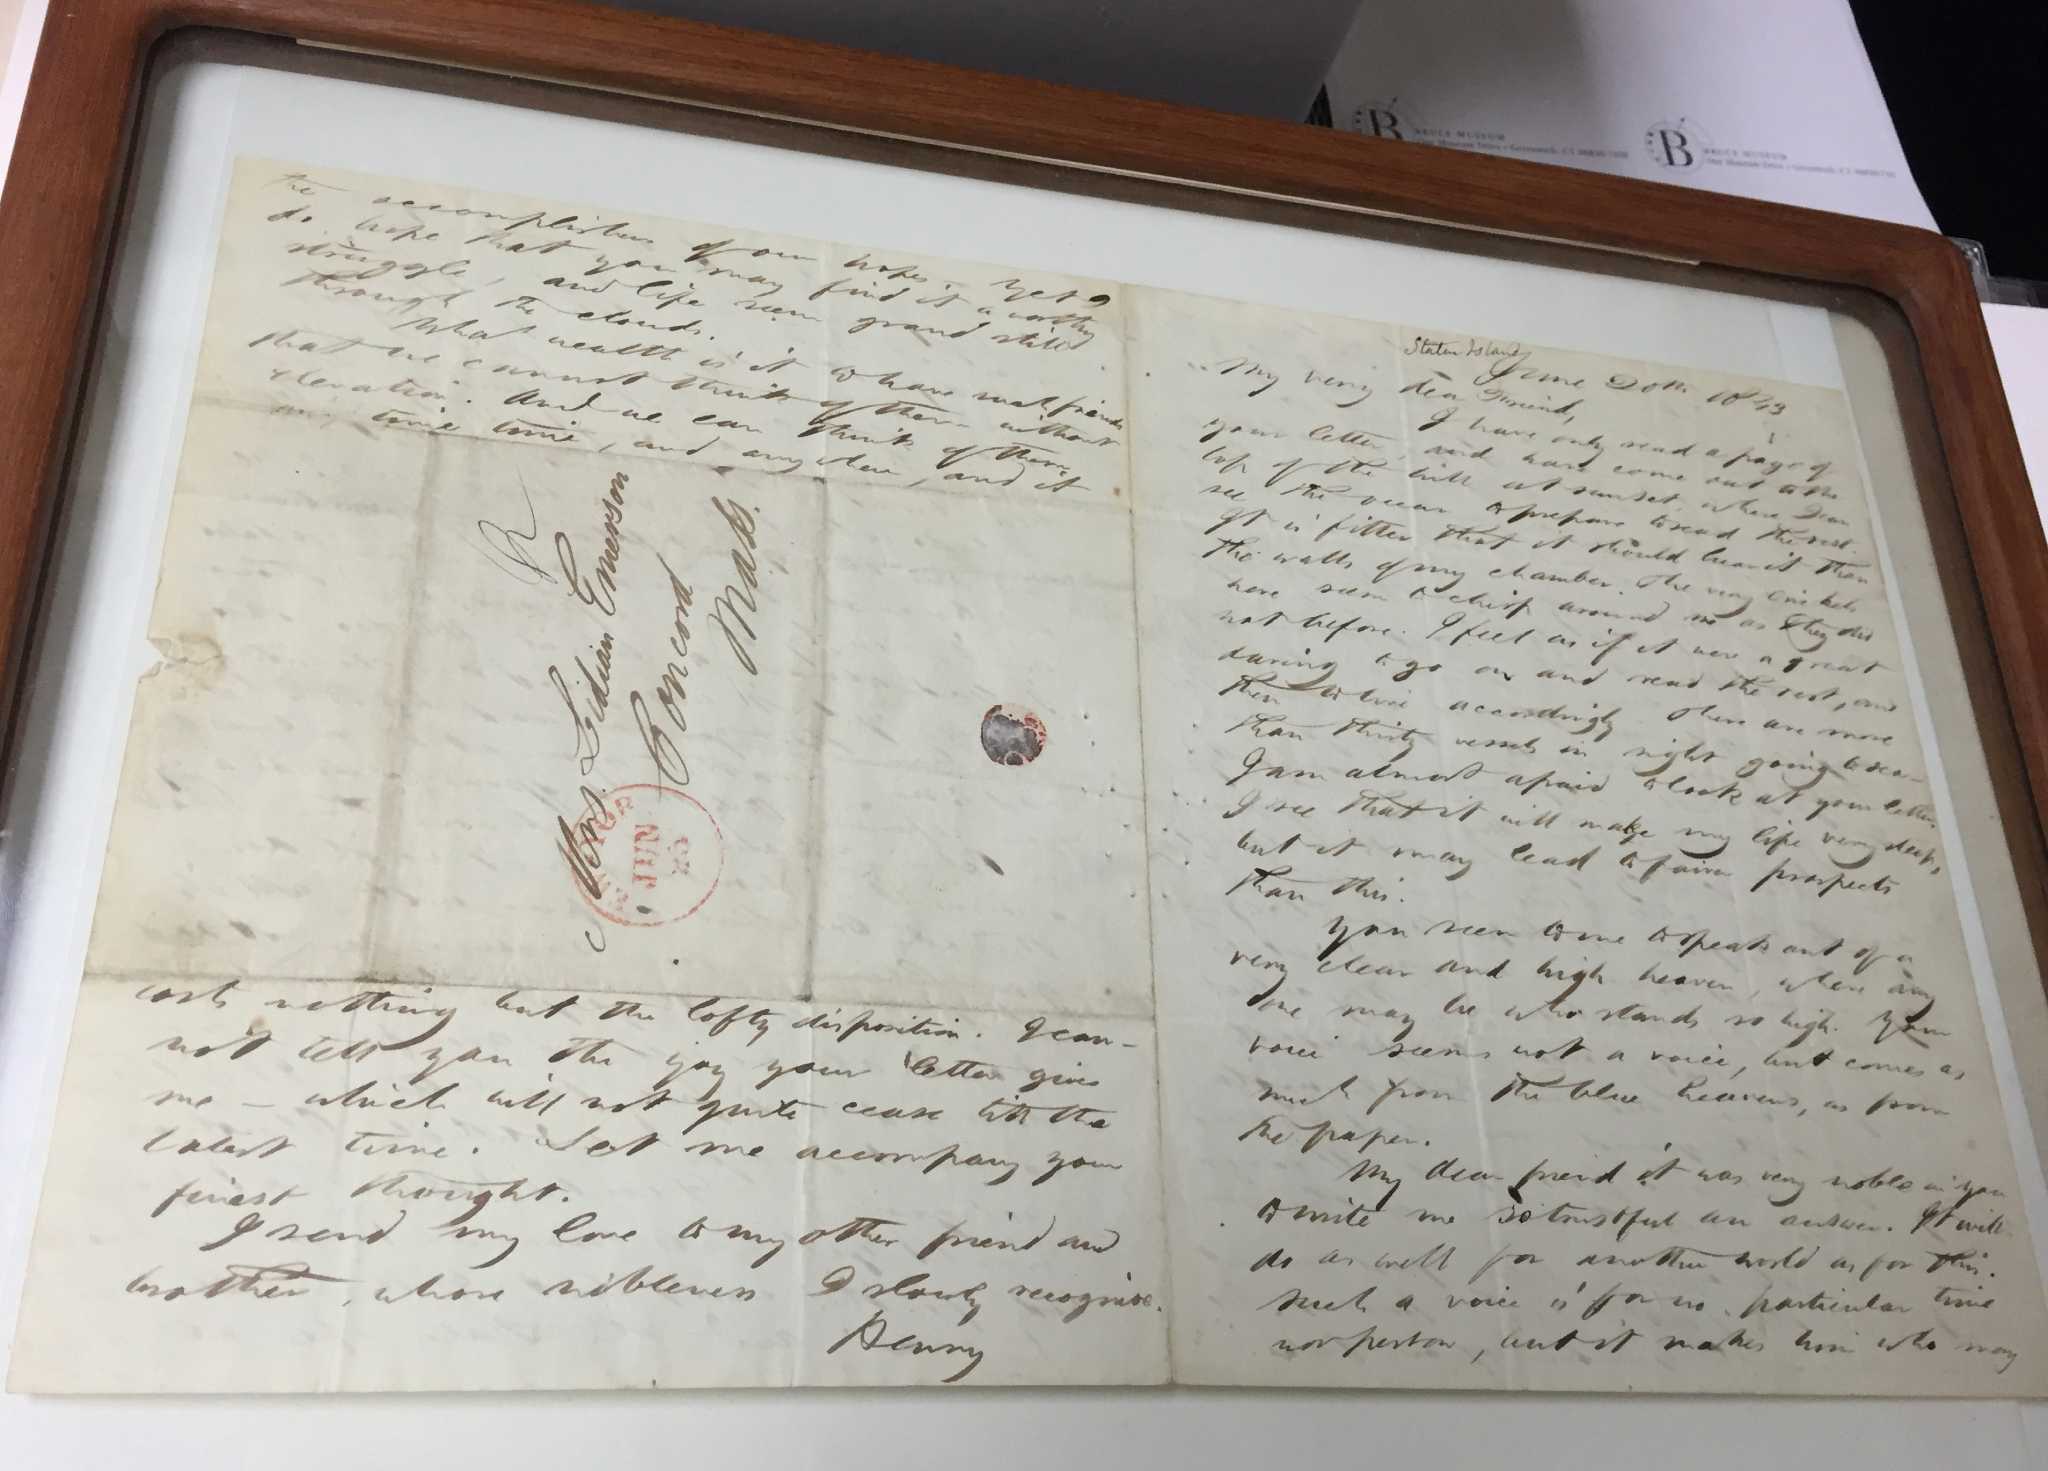 Staten Island
June 20th 1843
My very dear Friend,
I have only read a page of
your letter, and have come out to the
top of the hill at sunset, where I can
see the ocean to prepare to read the rest.
It is fitter that it should hear it than
the walls of my chamber. The very crickets
here seem to chirp around me as they did
not before. I feel as if it were a great
daring to go on and read the rest, and
then to live accordingly. There are more
than thirty vessels in sight going to sea—
I am almost afraid to look at your letter.
I see that it will make my life very steep,
but it may lead to fairer prospects
than this.
You seem to me to speak out of a
very clear and high heaven, where any
one may be who stands so high. Your
voice seems not a voice, but comes as
much from the blue heavens, as from
the paper.
My dear friend it was very noble in you
to write me so trustful an answer. It will
do as well for another world as for this.
Such a voice is for no particular time
nor person, but it makes him who may
the of our hopes. Yet I
do hope that you may find it a worthy
struggle, and life seem grand still
through the clouds.
What wealth is it to have such friends
that we cannot think of them without
elevation. And we can think of them
any time, and any where, and it
costs nothing but the lofty disposition. I can-
not tell you the joy your letter gives
me — which will not quite cease till the
latest time. Let me accompany your
finest thought.
I send my love to my other friend and
brother, whose nobleness I slowly recognise.
Henry
Mrs. Lidian Emerson
Concord
Mass.
JUN
B BRUCE MUSEUM
B BRUCE MUSEUM
One Museum Drive • Greenwich, CT